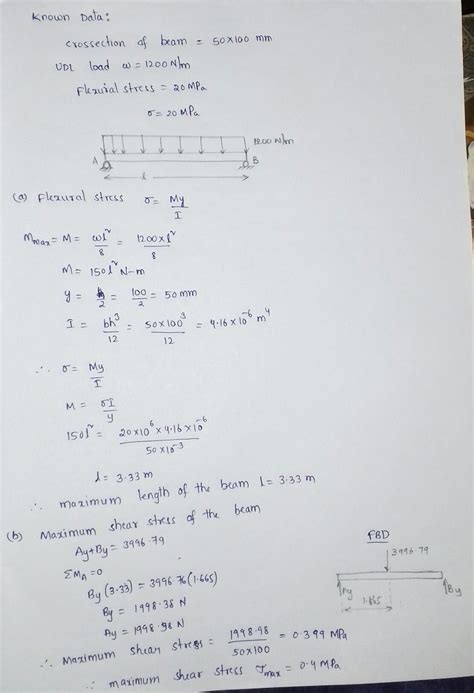 Known Data:
Crossection of beam = 50x100 mm
UDL load ω = 1200 N/m
Flexural stress = 20 MPa
σ = 20 MPa
1200 N/m
A B
l
(a) Flexural stress σ = My/I
Mmax = M = ωl²/8 = 1200xl²/8
M = 150l² N-m
y = h/2 = 100/2 = 50 mm
I = bh³/12 = 50x100³/12 = 4.16x10⁻⁶ m⁴
∴ σ = My/I
M = σI/y
150l² = 20x10⁶x4.16x10⁻⁶/50x10⁻³
l = 3.33 m
∴ maximum length of the beam l = 3.33 m
(b) Maximum shear stress of the beam
Ay+By = 3996.79
ΣMA=0
By (3.33) = 3996.76 (1.665)
By = 1998.38 N
Ay = 1998.98 N
FBD
3996.79
Ay By
1.665
∴ Maximum shear stress = 1998.98/50x100 = 0.399 MPa
∴ maximum shear stress Jmax = 0.4 MPa